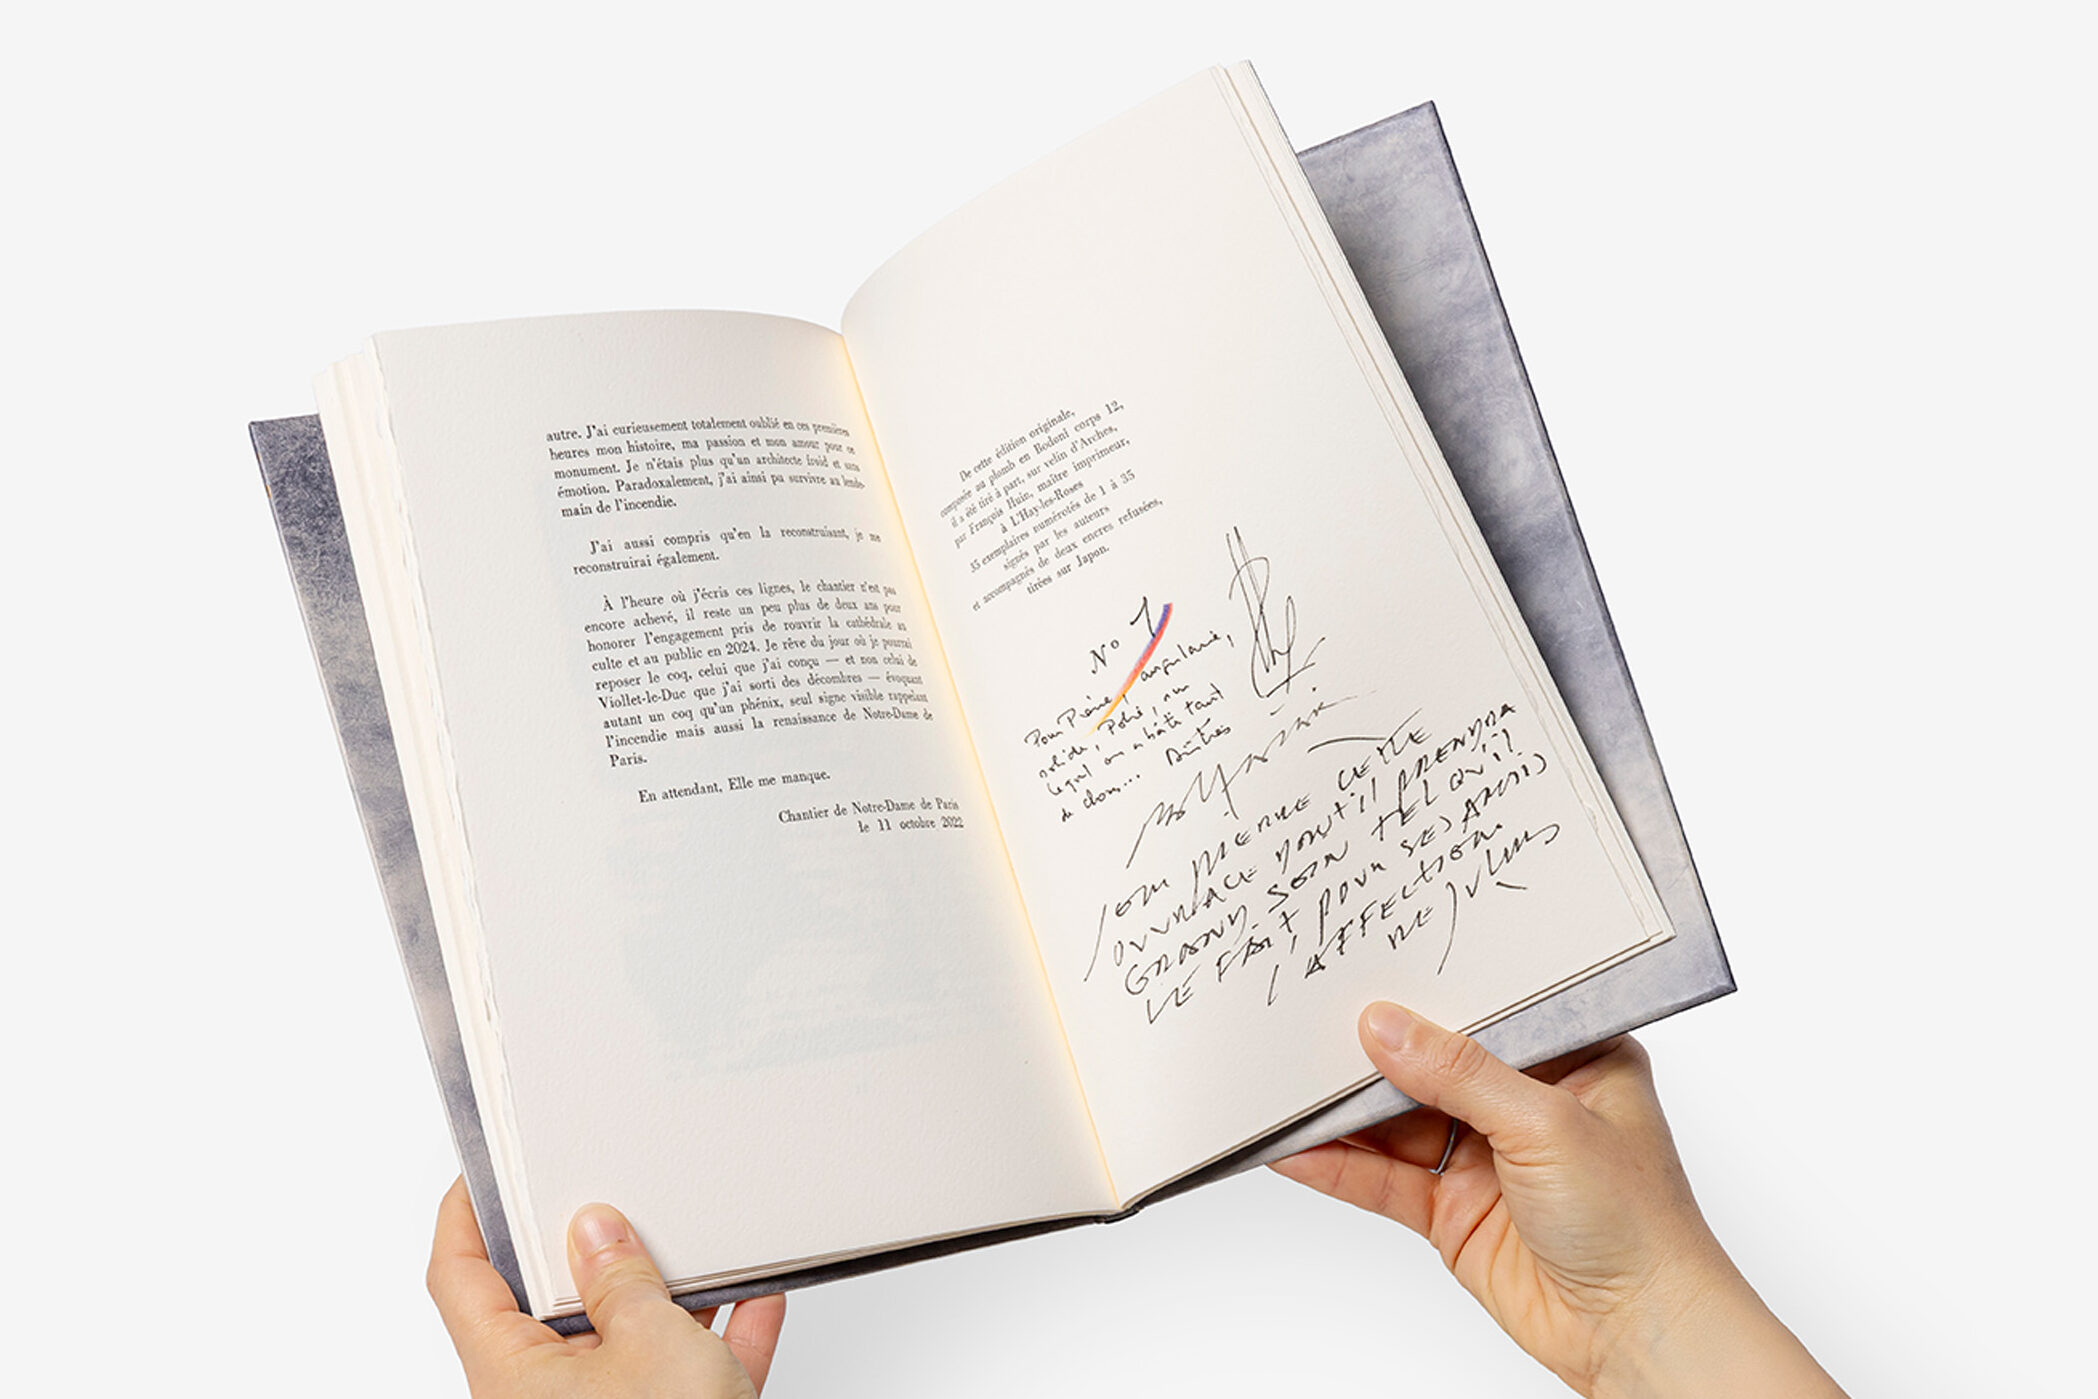 autre. J'ai curieusement totalement oublié en ces premières
heures mon histoire, ma passion et mon amour pour ce
monument. Je n'étais plus qu'un architecte froid et sans
émotion. Paradoxalement, j'ai ainsi pu survivre au lende-
main de l'incendie.
J'ai aussi compris qu'en la reconstruisant, je me
reconstruirai également.
À l'heure où j'écris ces lignes, le chantier n'est pas
encore achevé, il reste un peu plus de deux ans pour
honorer l'engagement pris de rouvrir la cathédrale au
culte et au public en 2024. Je rêve du jour où je pourrai
reposer le coq, celui que j'ai conçu — et non celui de
Viollet-le-Duc que j'ai sorti des décombres — évoquant
autant un coq qu'un phénix, seul signe visible rappelant
l'incendie mais aussi la renaissance de Notre-Dame de
Paris.
En attendant, Elle me manque.
Chantier de Notre-Dame de Paris
le 11 octobre 2022
De cette édition originale,
composée au plomb en Bodoni corps 12,
il a été tiré à part, sur velin d'Arches,
par François Huin, maître imprimeur,
à L'Hay-les-Roses
35 exemplaires numérotés de 1 à 35
signés par les auteurs
et accompagnés de deux encres refusées,
tirées sur Japon.
No 1
Pour Pierre, angulaire,
solide, Polie, sur
lequel on a bâti tant
de choses... d'autres
CETTE
OUVRAGE DONT IL PRENDRA
GRAND SOIN TEL QU'IL
LE FAIT POUR SES AMIS
L'AFFECTION
DE JULIUS